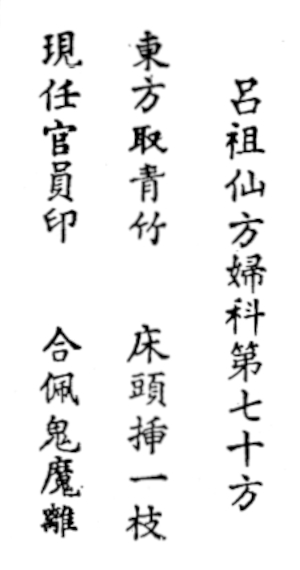 呂祖仙方婦科第七十方
東方取青竹　床頭挿一枝
現任官員印　合佩鬼魔離